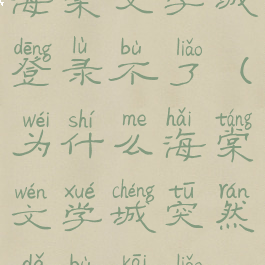 海棠文学城
dēng lù bù liǎo
登录不了（
wéi shí me hǎi táng
为什么海棠
wén xué chéng tū rán
文学城突然
dǎ bù kāi liǎo